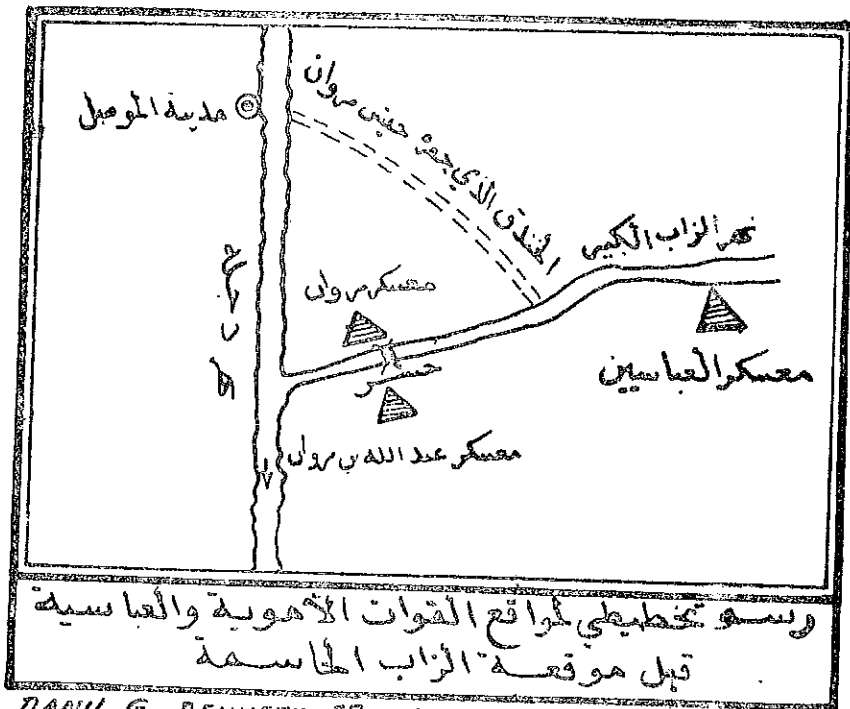 مدينة الموصل
الخندق الذي حفره جيش مروان
نهر الزاب الكبير
معسكر مروان
دجلة
جسر
معسكر العباسيين
معسكر عبد الله بن مروان
رسم تخطيطي لمواقع القوات الأموية والعباسية
قبل موقعة الزاب الحاسمة